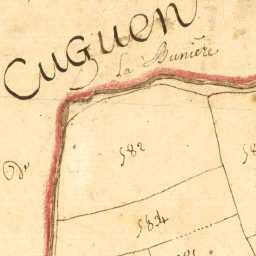 CUGUEN
La Bunière
De
582
584